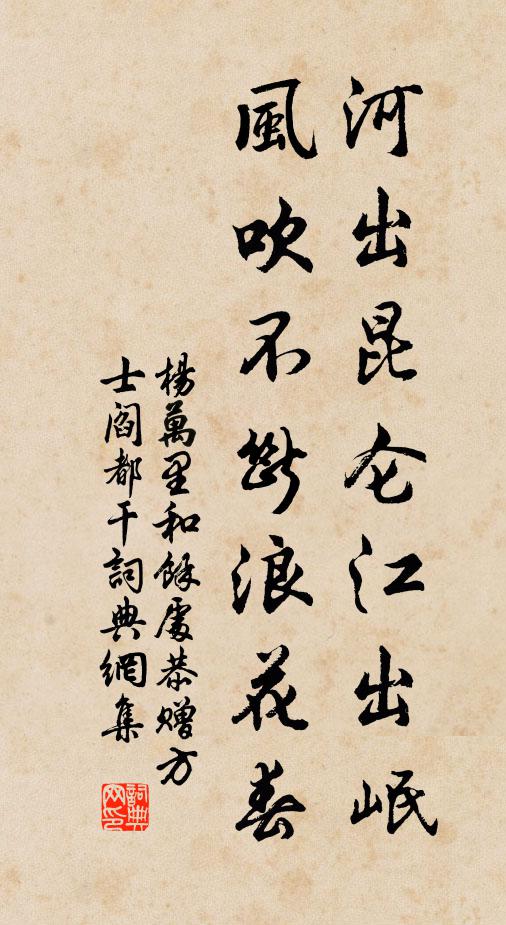 河出昆仑江出岷
風吹不斷浪花春
楊萬里和餘處恭赠方
士閻都干詞典網集
詞典网印